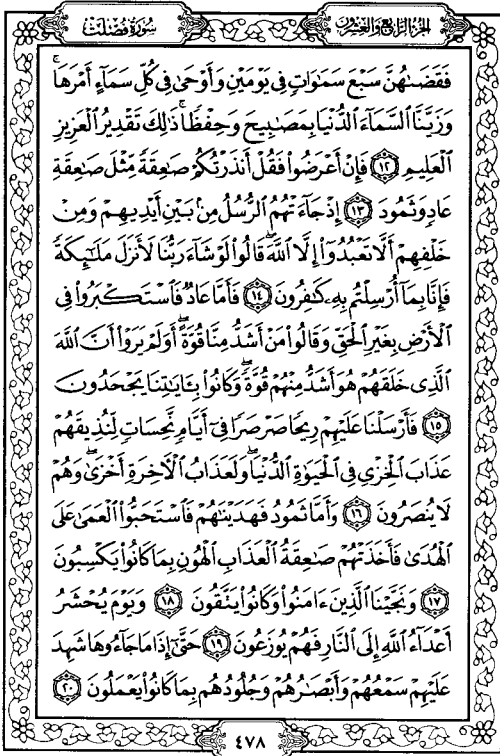 سُورَةُ فُصِّلَتْ
الجُزءُ الرَّابِعُ وَالعِشْرُونَ
فَقَضَىٰهُنَّ سَبْعَ سَمَٰوَاتٍ فِى يَوْمَيْنِ وَأَوْحَىٰ فِى كُلِّ سَمَآءٍ أَمْرَهَا ۚ
وَزَيَّنَّا ٱلسَّمَآءَ ٱلدُّنْيَا بِمَصَٰبِيحَ وَحِفْظًا ۚ ذَٰلِكَ تَقْدِيرُ ٱلْعَزِيزِ
ٱلْعَلِيمِ ١٢ فَإِنْ أَعْرَضُوا۟ فَقُلْ أَنذَرْتُكُمْ صَٰعِقَةً مِّثْلَ صَٰعِقَةِ
عَادٍ وَثَمُودَ ١٣ إِذْ جَآءَتْهُمُ ٱلرُّسُلُ مِنۢ بَيْنِ أَيْدِيهِمْ وَمِنْ
خَلْفِهِمْ أَلَّا تَعْبُدُوٓا۟ إِلَّا ٱللَّهَ ۖ قَالُوا۟ لَوْ شَآءَ رَبُّنَا لَأَنزَلَ مَلَٰٓئِكَةً
فَإِنَّا بِمَآ أُرْسِلْتُم بِهِۦ كَٰفِرُونَ ١٤ فَأَمَّا عَادٌ فَٱسْتَكْبَرُوا۟ فِى
ٱلْأَرْضِ بِغَيْرِ ٱلْحَقِّ وَقَالُوا۟ مَنْ أَشَدُّ مِنَّا قُوَّةً ۖ أَوَلَمْ يَرَوْا۟ أَنَّ ٱللَّهَ
ٱلَّذِى خَلَقَهُمْ هُوَ أَشَدُّ مِنْهُمْ قُوَّةً ۖ وَكَانُوا۟ بِـَٔايَٰتِنَا يَجْحَدُونَ
١٥ فَأَرْسَلْنَا عَلَيْهِمْ رِيحًا صَرْصَرًا فِىٓ أَيَّامٍ نَّحِسَاتٍ لِّنُذِيقَهُمْ
عَذَابَ ٱلْخِزْىِ فِى ٱلْحَيَوٰةِ ٱلدُّنْيَا ۖ وَلَعَذَابُ ٱلْءَاخِرَةِ أَخْزَىٰ ۖ وَهُمْ
لَا يُنصَرُونَ ١٦ وَأَمَّا ثَمُودُ فَهَدَيْنَٰهُمْ فَٱسْتَحَبُّوا۟ ٱلْعَمَىٰ عَلَى
ٱلْهُدَىٰ فَأَخَذَتْهُمْ صَٰعِقَةُ ٱلْعَذَابِ ٱلْهُونِ بِمَا كَانُوا۟ يَكْسِبُونَ
١٧ وَنَجَّيْنَا ٱلَّذِينَ ءَامَنُوا۟ وَكَانُوا۟ يَتَّقُونَ ١٨ وَيَوْمَ يُحْشَرُ
أَعْدَآءُ ٱللَّهِ إِلَى ٱلنَّارِ فَهُمْ يُوزَعُونَ ١٩ حَتَّىٰٓ إِذَا مَا جَآءُوهَا شَهِدَ
عَلَيْهِمْ سَمْعُهُمْ وَأَبْصَٰرُهُمْ وَجُلُودُهُم بِمَا كَانُوا۟ يَعْمَلُونَ ٢٠
٤٧٨